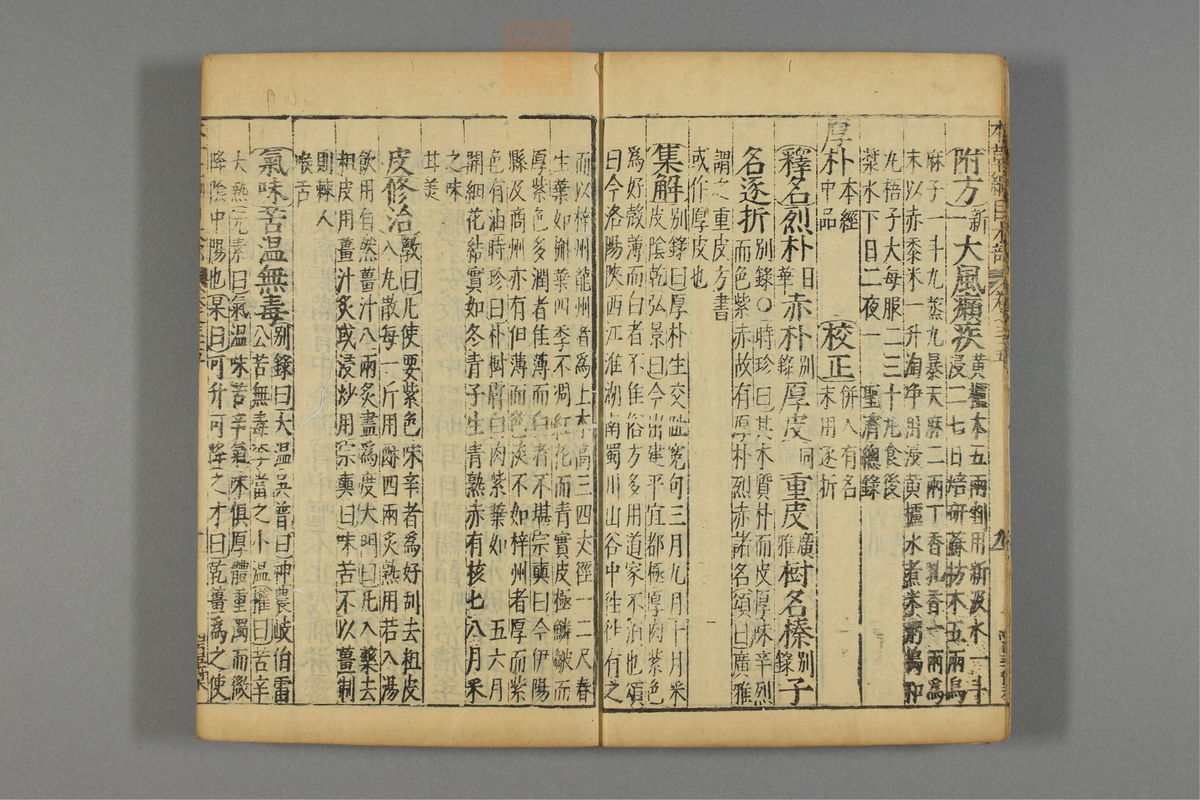 附方新一大風癩疾黃櫨木五兩剉用新汲水一斗
浸二七日焙研蘇枋木五兩烏
麻子一斗九蒸九暴天麻二兩丁香乳香一兩爲
末以赤黍米一升淘净用浸黃櫨水煮米粥搗和
丸梧子大每服二三十丸食後
漿水下日二夜一 聖濟總錄
厚朴本經中品 校正併入有名未用逐折
釋名烈朴日華赤朴別錄厚皮同重皮廣雅樹名榛別錄子
名逐折別錄○時珍曰其木質朴而皮厚味辛烈
而色紫赤故有厚朴烈赤諸名頌曰廣雅
謂之重皮方書
或作厚皮也
集解別錄曰厚朴生交趾冤句三月九月十月采
皮陰乾弘景曰今出建平宜都極厚肉紫色
爲好殼薄而白者不佳俗方多用道家不須也頌
曰今洛陽陝西江淮湖南蜀川山谷中往往有之
而以梓州龍州者爲上木高三四丈徑一二尺春
生葉如槲葉四季不凋紅花而青實皮極鱗皺而
厚紫色多潤者佳薄而白者不堪宗奭曰今伊陽
縣及商州亦有但薄而色淡不如梓州者厚而紫
色有油時珍曰朴樹膚白肉紫葉如 五六月
開細花結實如冬青子生青熟赤有核七八月采
之味
甘美
皮修治斅曰凡使要紫色味辛者爲好刮去粗皮
入丸散每一斤用酥四兩炙熟用若入湯
飲用自然薑汁八兩炙盡爲度大明曰凡入藥去
粗皮用薑汁炙或浸炒用宗奭曰味苦不以薑制
則棘人
喉舌
氣味苦温無毒別錄曰大温吳普曰神農岐伯雷
公苦無毒李當之小温權曰苦辛
大熱元素曰氣温味苦辛氣味俱厚體重濁而微
降陰中陽也杲曰可升可降之才曰乾薑爲之使